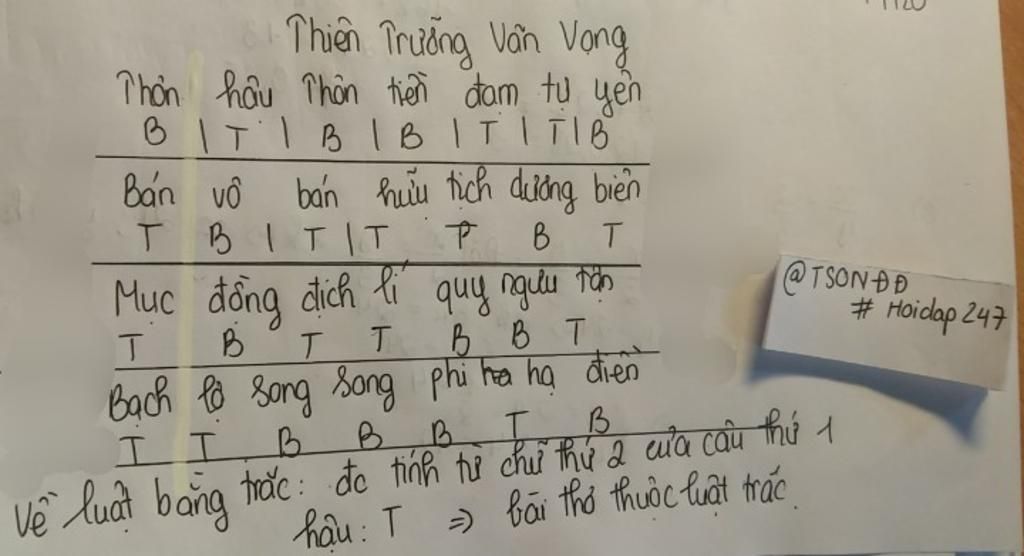 1120
Thiên Trường Vãn Vọng
Thôn hậu Thôn tiền đạm tự yên
B | T | B | B | T | T | B
Bán vô bán hữu tịch dương biên
T B | T | T T B T
Mục đồng địch lí quy ngưu tận
T B T T B B T
Bạch lộ song song phi hạ điền
T T B B B T B
Về luật bằng trắc: đc tính từ chữ thứ 2 của câu thứ 1
hậu: T ⇒ bài thơ thuộc luật trắc.
@TSONĐĐ
# Hoidap247